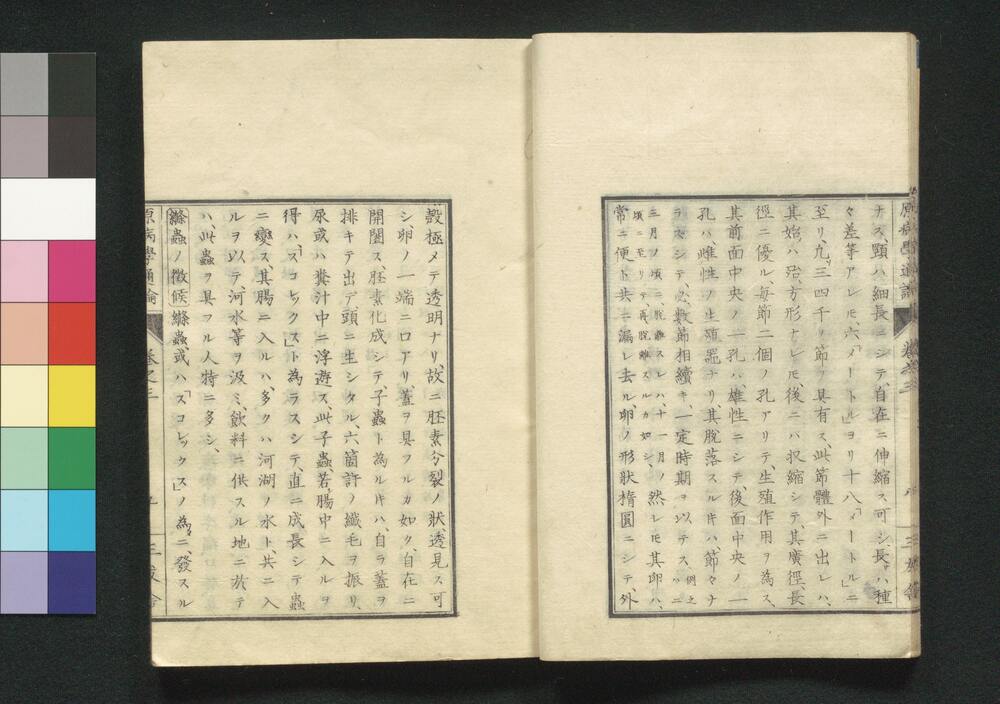 ナス、頸ハ細長ニシテ、自在ニ伸縮ス可シ、長サハ種
々差等アレ𪜈、六「メートル」ヨリ十八「メートル」ニ
至リ、九、三四千ノ節ヲ具有ス、此節體外ニ出レハ、
其始ハ殆、方形ナレ𪜈、後ニハ收縮シテ、其廣徑、長
徑ニ優ル、每節二個ノ孔アリテ、生殖作用ヲ為ス、
其前面中央ノ一孔ハ、雄性ニシテ、後面中央ノ一
孔ハ、雌性ノ生殖器ナリ、其脫落スルキハ、節々ナ
ラスシテ、必、數節相續キ、一定時期ヲ以テス、例之ハ二
三月ノ頃ニ、脫離スレハ、十一月ノ
頃ニ至リテ、再脫離スルカ如シ、然レ𪜈其卵ハ、
常ニ便ト共ニ漏レ去ル、卵ノ形狀橢圓ニシテ、外
殼極メテ透明ナリ、故ニ胚素分裂ノ狀、透見ス可
シ、卵ノ一端ニ口アリ、蓋ヲ具フルカ如ク、自在ニ
開闔ス、胚素化成シテ、子蟲ト為ルキハ、自ラ蓋ヲ
排キテ出デ、頭ニ生シタル、六箇許ノ纖毛ヲ振リ、
尿或ハ糞汁中ニ浮遊ス、此子蟲、若腸中ニ入ルヲ
得ハ、「スコレックス」ト為ラスシテ、直ニ成長シテ蟲
ニ變ス、其腸ニ入ルハ、多クハ河湖ノ水ト、共ニ入
ルヲ以テ、河水等ヲ汲ミ、飲料ニ供スル地ニ於テ
ハ、此蟲ヲ具フル人特ニ多シ、
絛蟲ノ徴候 絛蟲、或ハ「スコレックス」ノ為ニ、發スル
原病學通論 卷之三